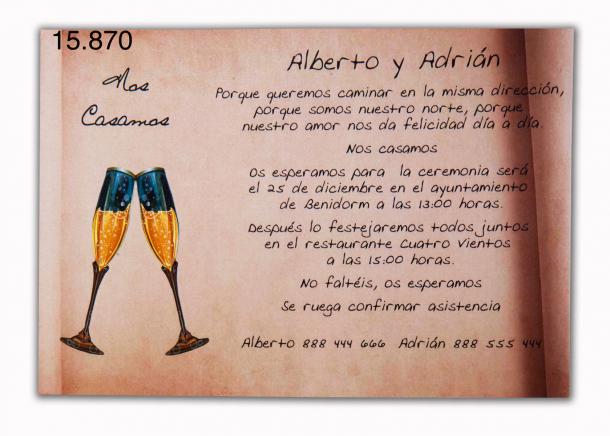 15.870
Nos
Casamos
Alberto y Adrián
Porque queremos caminar en la misma dirección,
porque somos nuestro norte, porque
nuestro amor nos da felicidad día a día.
Nos casamos
Os esperamos para la ceremonia será
el 25 de diciembre en el ayuntamiento
de Benidorm a las 13:00 horas.
Después lo festejaremos todos juntos
en el restaurante Cuatro Vientos
a las 15:00 horas.
No faltéis, os esperamos
Se ruega confirmar asistencia
Alberto 888 444 666 Adrián 888 555 444